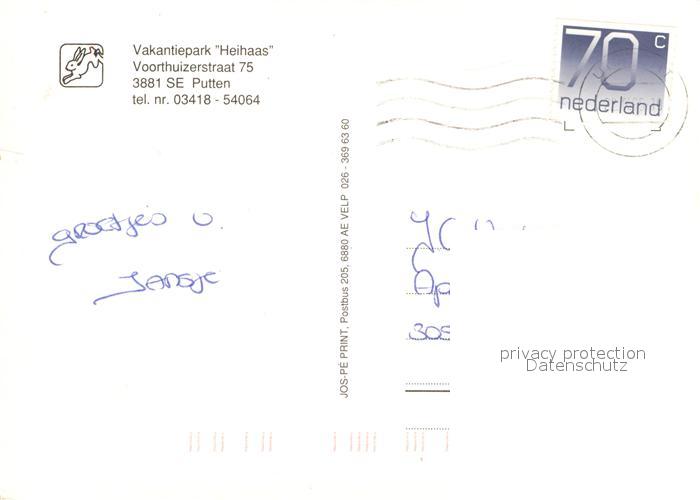 Vakantiepark "Heihaas"
Voorthuizerstraat 75
3881 SE Putten
tel. nr. 03418 - 54064
70 c
nederland
JOS-PÉ PRINT, Postbus 205, 6880 AE VELP 026 - 369 63 60
groetjes v.
Jansje
privacy protection
Datenschutz